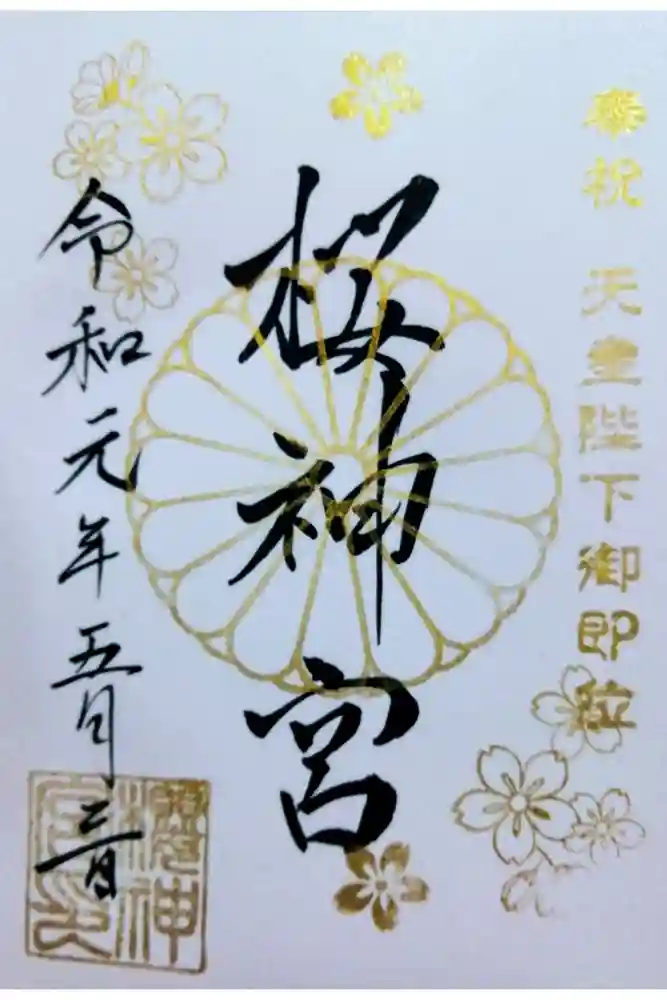 奉祝 天皇陛下御即位
桜神宮
令和元年五月三日
櫻神
宮印